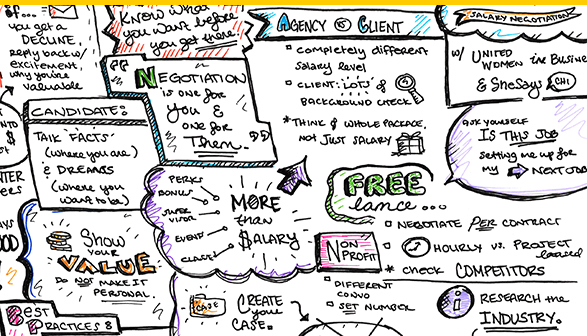 if...
you get a
DECLINE,
reply back w/
excitement,
why you're
valuable
KNOW What
you Want before
you get there
NEGOTIATION
is one for
you &
one for
Them.
CANDIDATE:
TALK "FACTS"
(where you are)
& DREAMS
(where you
want to be)
Show
your
VALUE
DO NOT MAKE IT
PERSONAL
BEST
PRACTICES &
AGENCY vs CLIENT
completely different
salary level
CLIENT: LOTS of
BACKGROUND CHECK
*THINK of WHOLE PACKAGE,
NOT JUST SALARY
SALARY NEGOTIATION
w/ UNITED
WOMEN in BUSINE
& SheSays CHI
ASK YOURSELF
IS THIS JOB
setting me up for
my NEXT JOB
PERKS
BONUS
SUPER
VISOR
EVENT
CLASS
MORE
than
$ALARY
FREE
lance...
NEGOTIATE PER CONTRACT
HOURLY vs. PROJECT
based
* check COMPETITORS
NON
PROFIT
DIFFERENT
CONVO
SET NUMBER
CASE
CREATE
your
CASE.
i RESEARCH the
INDUSTRY.